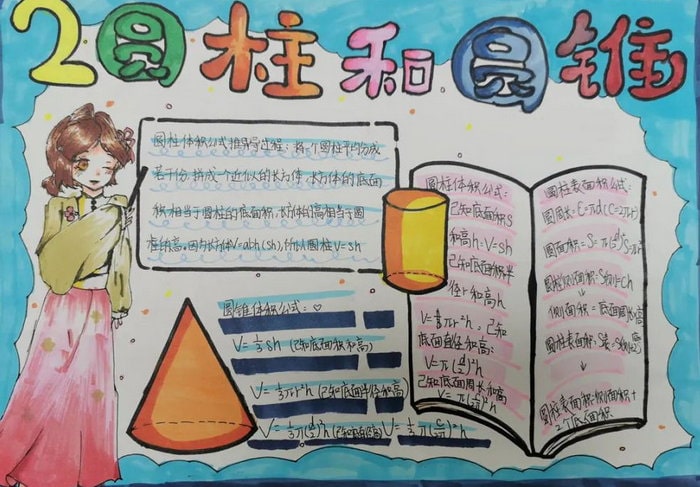 2圆柱和圆锥
圆柱体积公式推导过程：将一个圆柱平均分成
若干份拼成一个近似的长方体，长方体的底面
积相当于圆柱的底面积，长方体的高相当于圆
柱的高。因为长方体V=abh(sh)，所以圆柱V=sh
圆锥体积公式：♡
V=⅓sh(已知底面积和高)
V=⅓πr²h(已知底面半径和高)
V=⅓π(d/2)²h(已知直径高)V=⅓π(C/2π)²h
圆柱体积公式：
已知底面积S
和高h:V=sh
已知底面积半
径r和高h
已知
底面直径和高：
V=π(d/2)²h
已知底面周长和高
V=π(C/2π)²h
圆柱表面积公式：
圆周长：C=πd(C=2πr)
圆面积=S=π(d/2)²S=πr²
圆柱侧面积：S侧=ch
↓
侧面积=底面周长×高
圆柱表面积：S表=S侧+2S底
↓
圆柱表面积=侧面积+
2个底面积